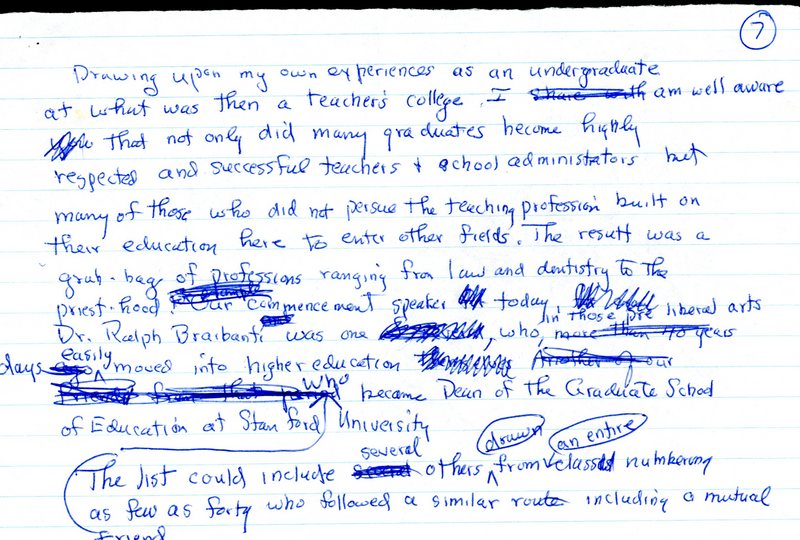 7
Drawing upon my own experiences as an undergraduate
at what was then a teacher's college. I share with am well aware
that not only did many graduates become highly
respected and successful teachers + school administators but
many of those who did not persue the teaching profession built on
their education here to enter other fields. The result was a
grab-bag of professions ranging from law and dentistry to the
priest-hood. Our commencement speaker today,
in those pre liberal arts
Dr. Ralph Braibanti was one, who, more than 40 years
days easily moved into higher education Another of our
friends from that period who became Dean of the Graduate School
of Education at Stanford University
several drawn an entire
The list could include second others from class numbering
as few as forty who followed a similar route including a mutual
Friend